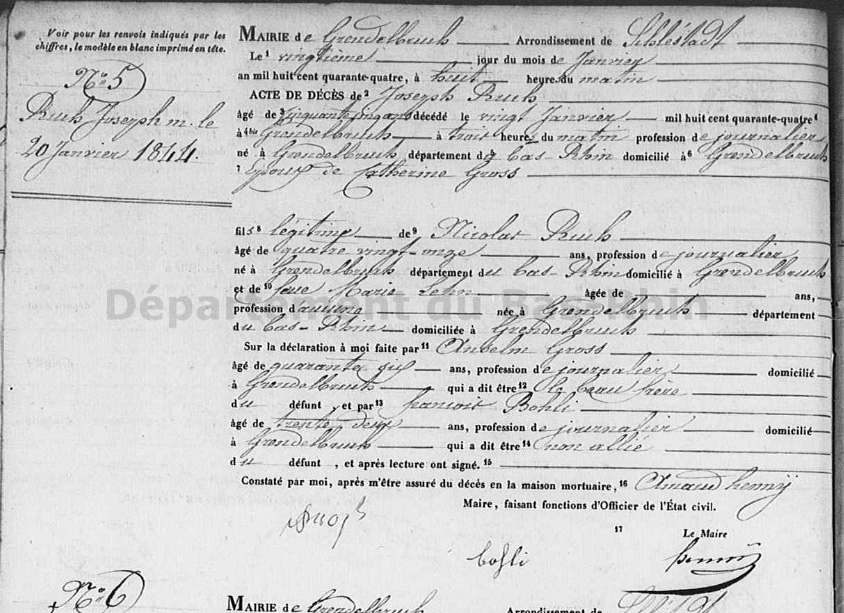 Voir pour les renvois indiqués par les
chiffres, le modèle en blanc imprimé en tête.
N° 5
Ruch Joseph m. le
20 Janvier 1844.
MAIRIE de Grendelbruch Arrondissement de Schlestadt
Le 1 vingtième jour du mois de Janvier
an mil huit cent quarante-quatre, à huit heures du matin
ACTE DE DÉCÈS de 2 Joseph Ruch
âgé de 3 Cinquante cinq ans décédé le vingt Janvier mil huit cent quarante-quatre 4
à Grendelbruch à trois heures du matin profession de journalier
né à Grendelbruch, département du bas-Rhin domicilié à 6 Grendelbruch
7 Epoux de Catherine Gross
fils 8 légitime de 9 Nicolas Ruch
âgé de quatre vingt-onze ans, profession de journalier
né à Grendelbruch département du bas-Rhin domicilié à Grendelbruch
et de 10 feue Marie âgée de ans,
profession d'aucune née à Grendelbruch département
du bas-Rhin domiciliée à Grendelbruch
Sur la déclaration à moi faite par 11 Anselm Gross
âgé de quarante six ans, profession de journalier domicilié
à Grendelbruch qui a dit être 12 le beau frère
du défunt, et par 13 francois Bohli
âgé de trente deux ans, profession de journalier domicilié
à Grendelbruch qui a dit être 14 non allié
du défunt, et après lecture ont signé. 15
Constaté par moi, après m'être assuré du décès en la maison mortuaire, 16 Amand henny
Maire, faisant fonctions d'Officier de l'État civil.
17 Le Maire
bohli henny
N° 6
MAIRIE de Grendelbruch Arrondissement de
Département du Bas-Rhin